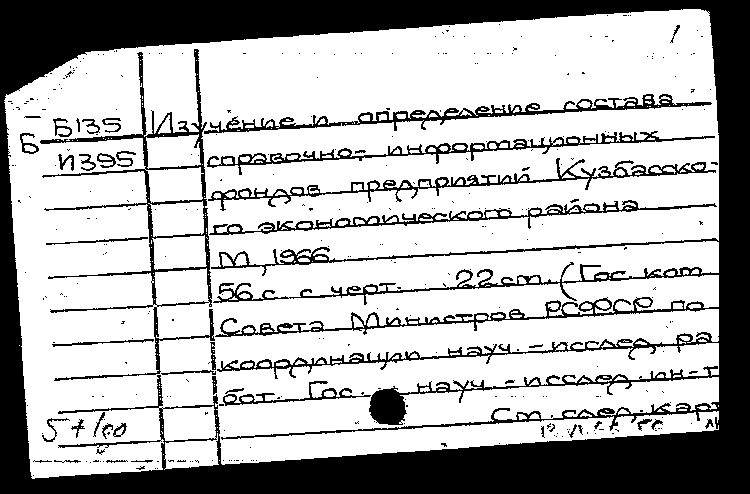 1
Б Б135 Изучение и определение состава
И395 справочно-информационных
фондов предприятий Кузбасско-
го экономического района
М, 1966
56 с с черт. 22 см. (Гос. ком
Совета Министров РСФСР по
координации науч.-исслед. ра
бот. Гос. науч.-исслед. ин-т
См. след. карт